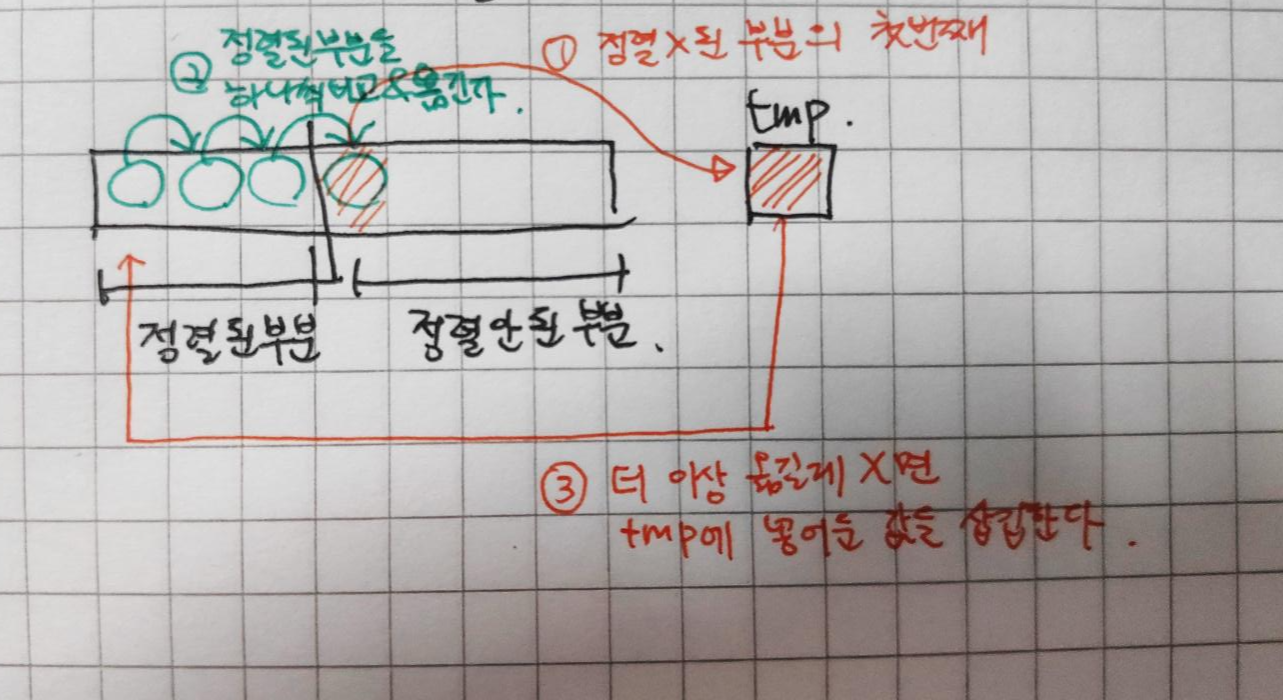 ② 정렬된 부분을
하나씩 비교 & 옮긴다.
① 정렬X된 부분의 첫번째
tmp.
정렬된부분
정렬안된 부분.
③ 더 이상 옮길게 X면
tmp에 넣어둔 값을 삽입한다.